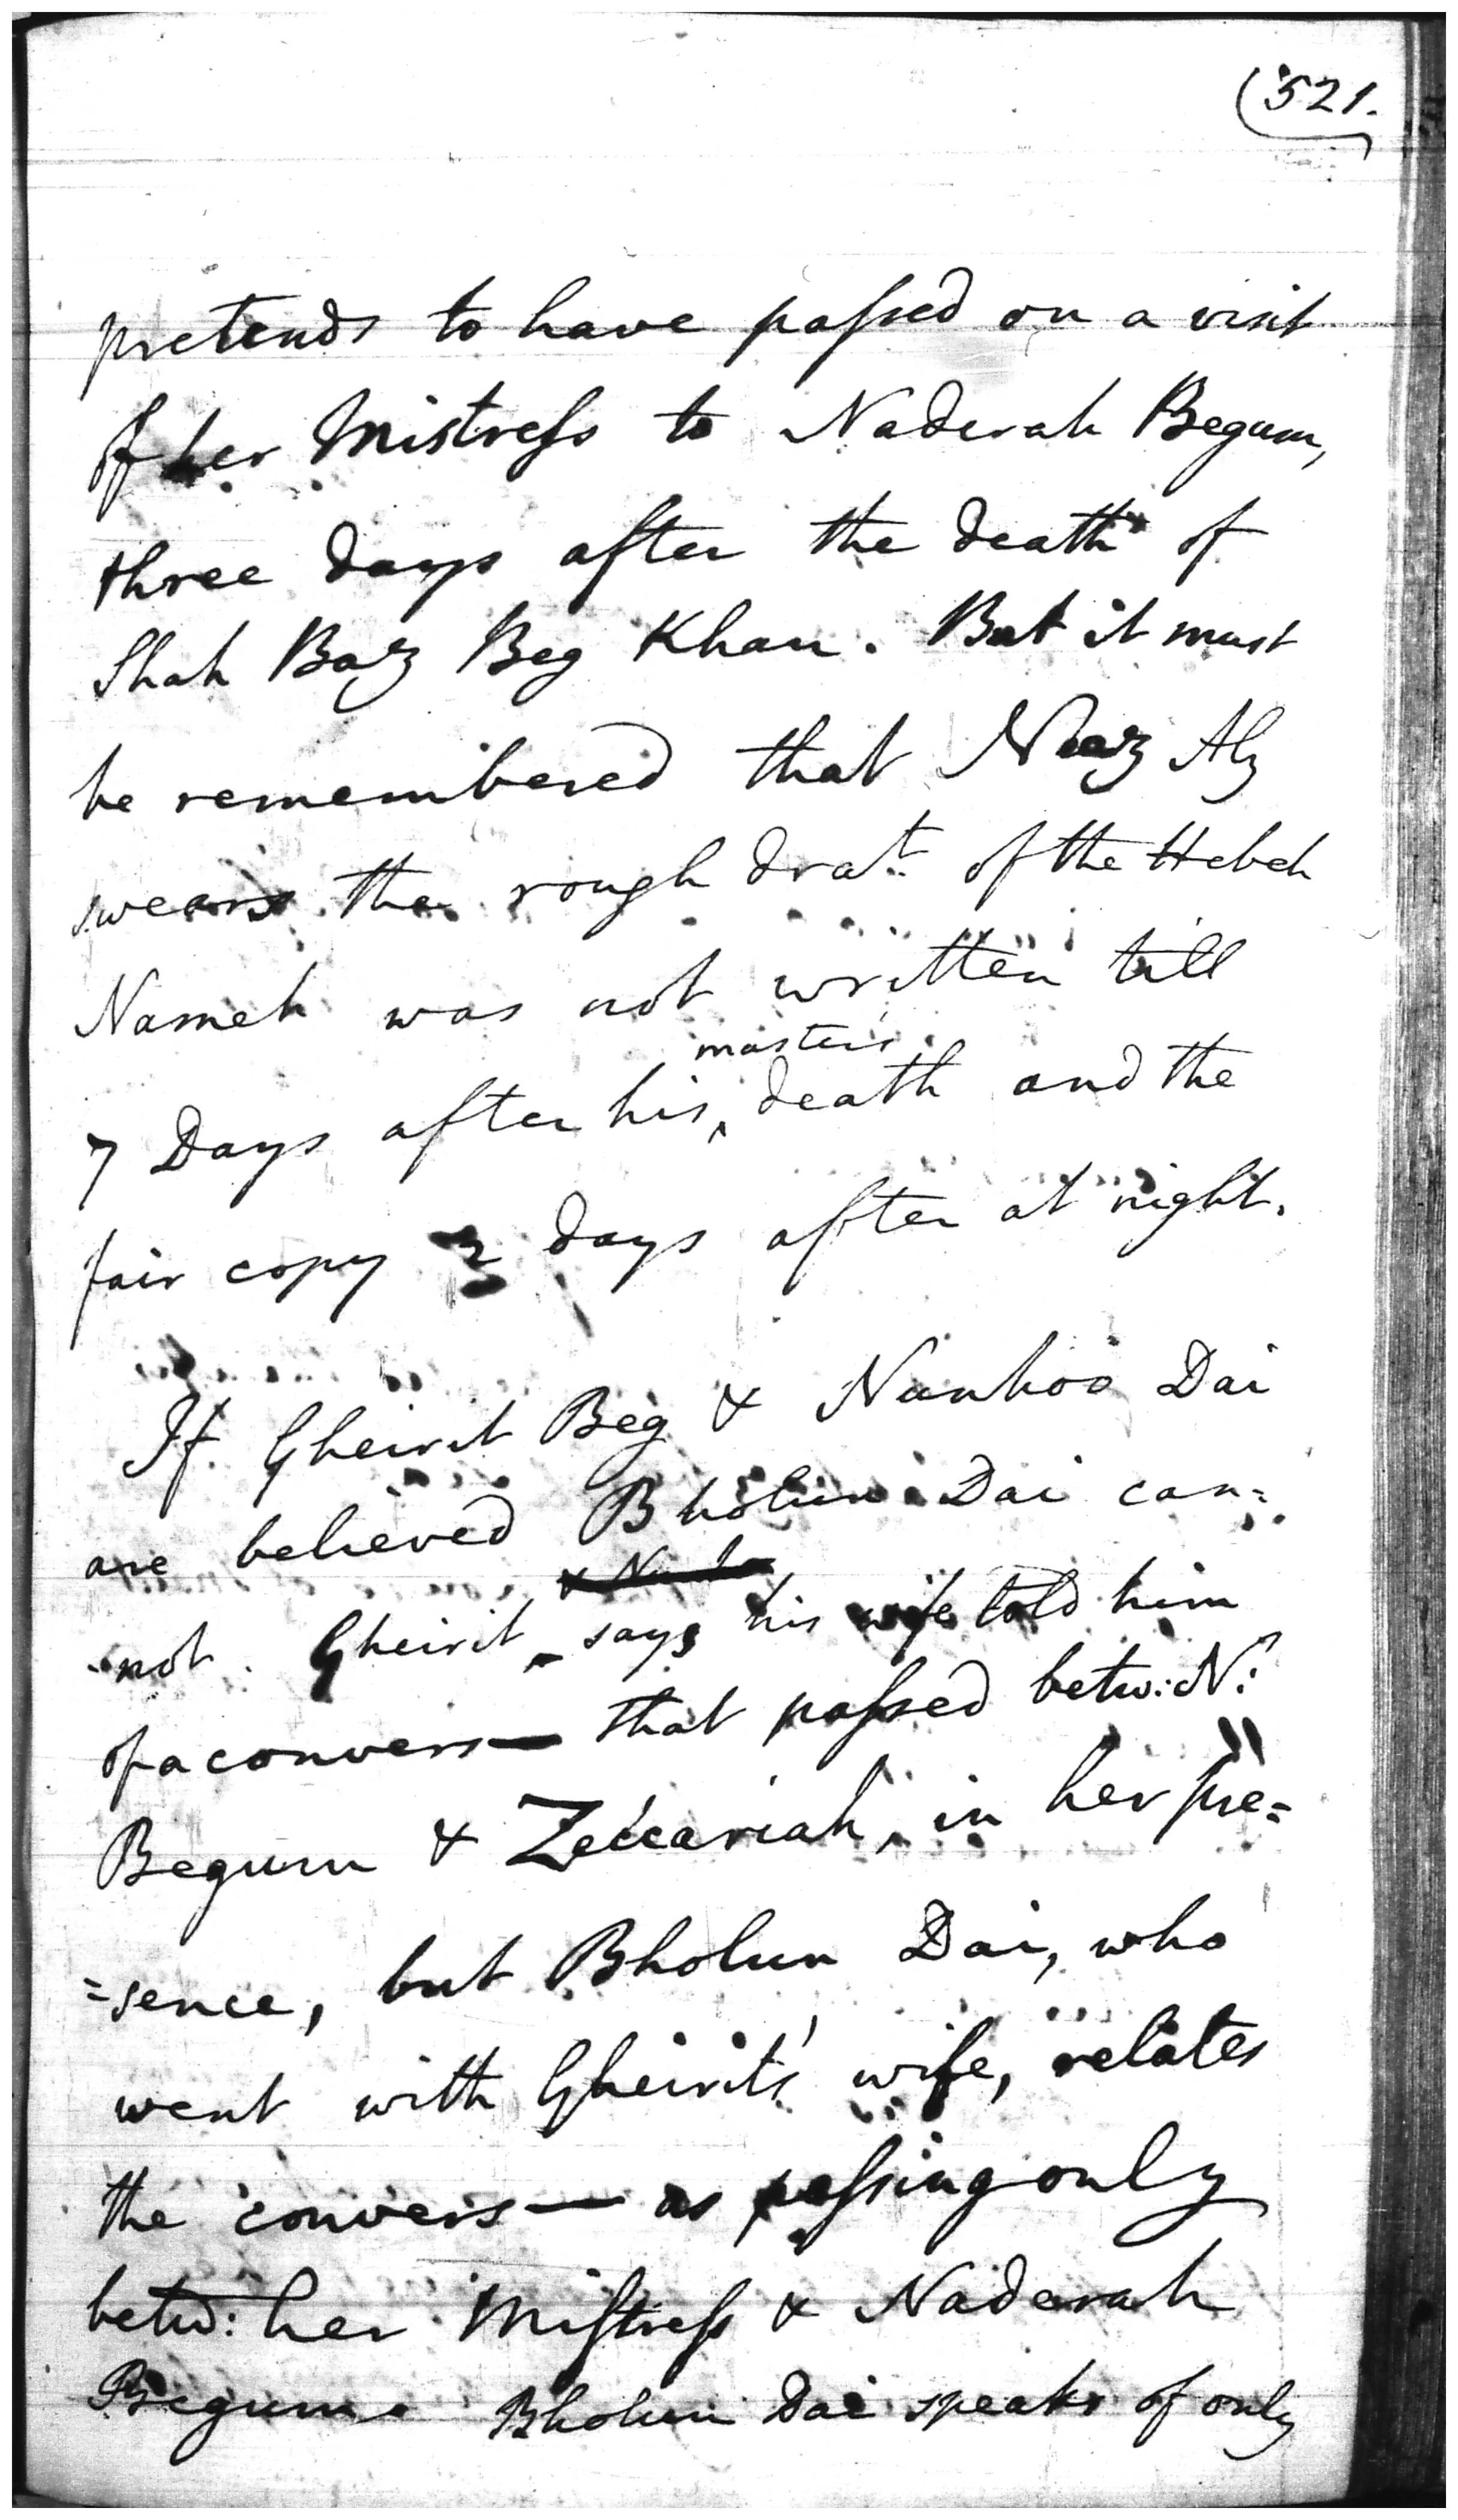 (521.
pretends to have passed on a visit
of her Mistress to Naderah Begum,
three days after the death of
Shah Baz Beg Khan. But it must
be remembered that Neaz Aly
swears the rough drat. of the Hebeh
Nameh was not written till
master's
7 Days after his ‸ death and the
fair copy 2 days after at night.
If Gheirit Beg & Nunhoo Dai
are believed Bholun Dai can=
not. Gheirit says his wife told him
of a convers— that passed betw: N:
Begum & Zeccariah, in her pre=
=sence, but Bholun Dai, who
went with Gheirit's wife, relates
the convers— as passing only
betw: her Mistress & Naderah
Begum. Bholun Dai speaks of only